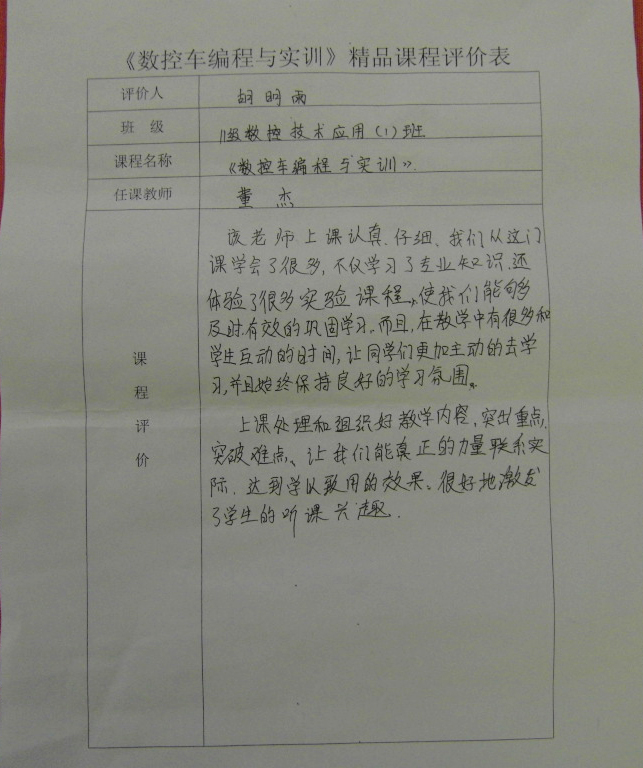 《数控车编程与实训》精品课程评价表
评价人 胡明雨
班 级 11级数控技术应用(1)班
课程名称 《数控车编程与实训》.
任课教师 董 杰
课程评价
该老师上课认真.仔细、我们从这门
课学会了很多,不仅学习了专业知识.还
体验了很多实验课程。使我们能够多
及时.有效的巩固学习。而且,在教学中有很多和
学生互动的时间,让同学们更加主动的去学
习,并且始终保持良好的学习氛围。
上课处理和组织好教学内容,突出重点,
突破难点、让我们能真正的力量联系实
际.达到学以致用的效果。很好地激发
了学生的听课兴趣.